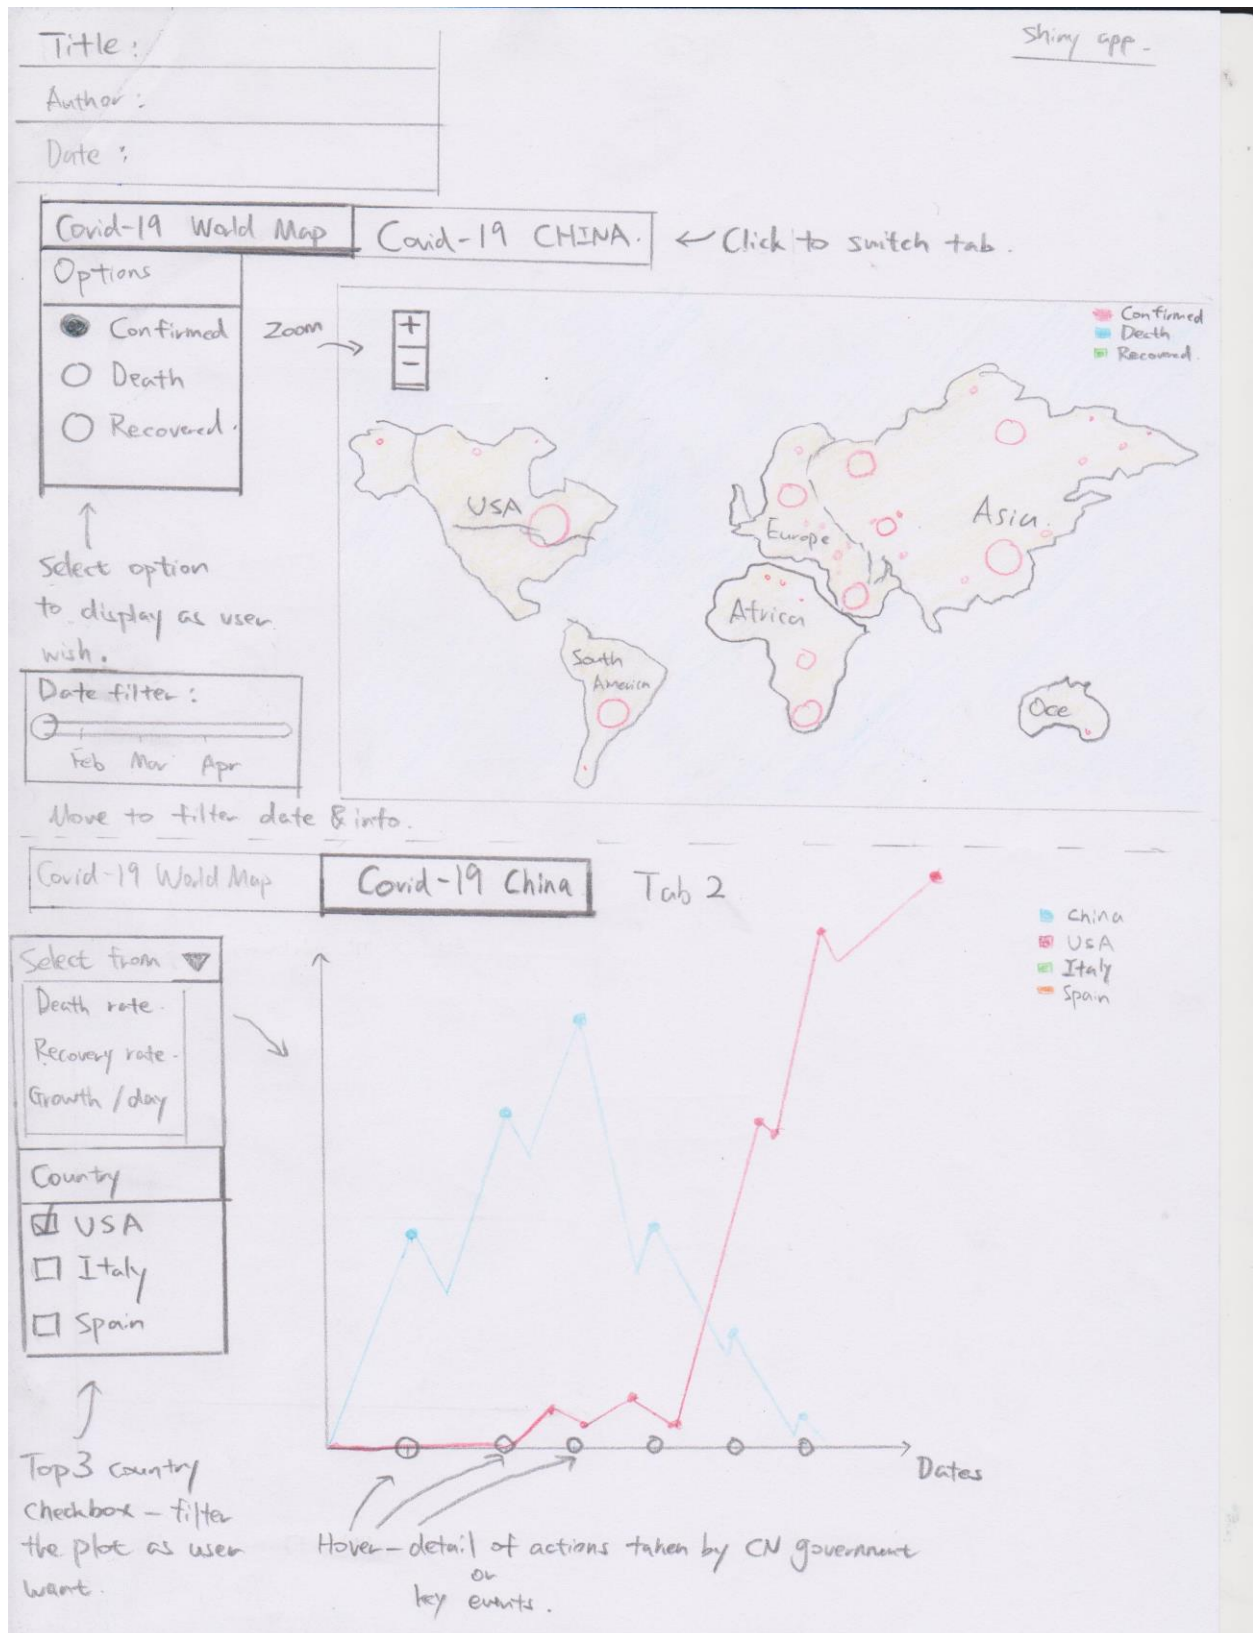 Title :
Shiny app.
Author :
Date :
Covid-19 World Map
Covid-19 CHINA.
← Click to switch tab.
Options
Confirmed
Death
Recovered.
Zoom
+
-
Confirmed
Death
Recovered.
USA
Europe
Asia.
Africa
South
America
Oce
Select option
to display as user
wish.
Date filter :
Feb Mar Apr
Move to filter date & info.
Covid-19 World Map
Covid-19 China
Tab 2
Select from
Death rate.
Recovery rate.
Growth /day
China
USA
Italy
Spain
Country
USA
Italy
Spain
Dates
Top 3 country
checkbox - filter
the plot as user
want.
Hover - detail of actions taken by CN government
or
key events.